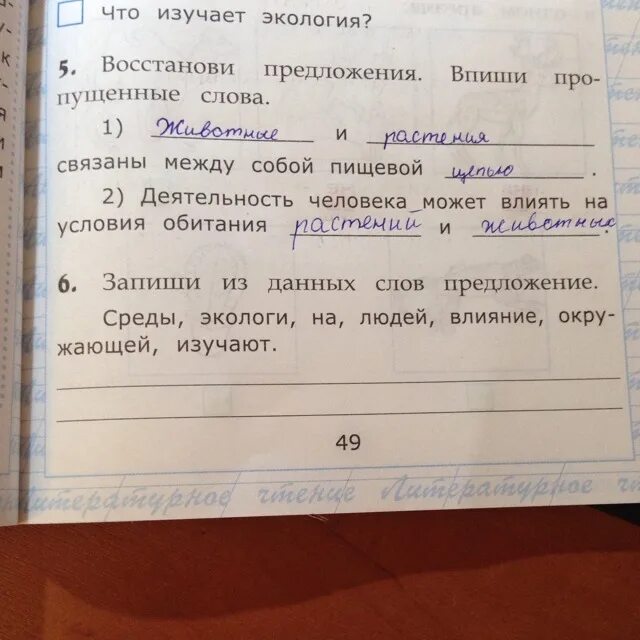 Что изучает экология?
5. Восстанови предложения. Впиши про-
пущенные слова.
1) Животные и растения
связаны между собой пищевой цепью .
2) Деятельность человека может влиять на
условия обитания растений и животных.
6. Запиши из данных слов предложение.
Среды, экологи, на, людей, влияние, окру-
жающей, изучают.
49
Литературное чтение Литературное